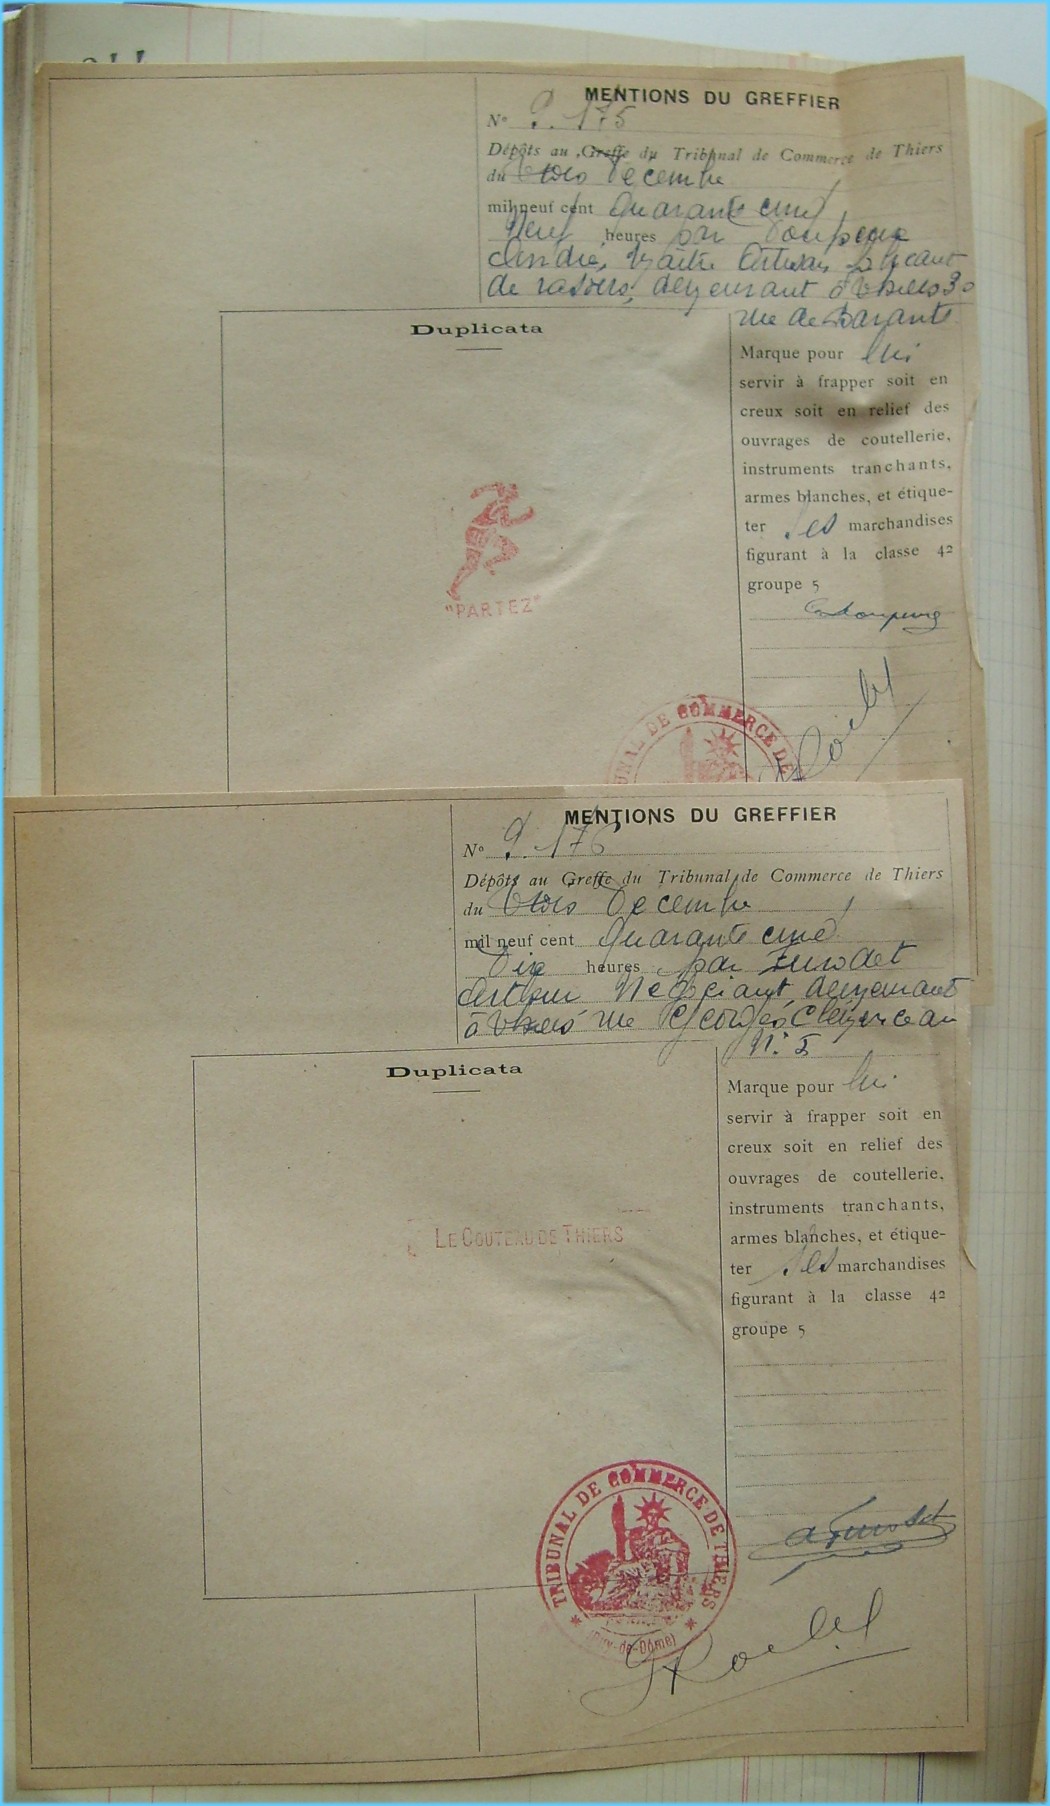 MENTIONS DU GREFFIER
N° 9.175
Dépôts au Greffe du Tribunal de Commerce de Thiers
du trois Décembre
mil neuf cent quarante cinq
Neuf heures par
André, Maître Artisan
de rasoirs, demeurant à Thiers 30
rue de Barante
Duplicata
Marque pour lui
servir à frapper soit en
creux soit en relief des
ouvrages de coutellerie,
instruments tranchants,
armes blanches, et étique-
ter ses marchandises
figurant à la classe 42
groupe 5
"PARTEZ"
TRIBUNAL DE COMMERCE DE
MENTIONS DU GREFFIER
N° 9.176
Dépôts au Greffe du Tribunal de Commerce de Thiers
du trois Décembre
mil neuf cent quarante cinq
Dix heures par
Négociant demeurant
à Thiers rue Georges Clemenceau
Duplicata
Marque pour lui
servir à frapper soit en
creux soit en relief des
ouvrages de coutellerie,
instruments tranchants,
armes blanches, et étique-
ter ses marchandises
figurant à la classe 42
groupe 5
LE COUTEAU DE THIERS
TRIBUNAL DE COMMERCE DE THIERS
(Puy-de-Dôme)